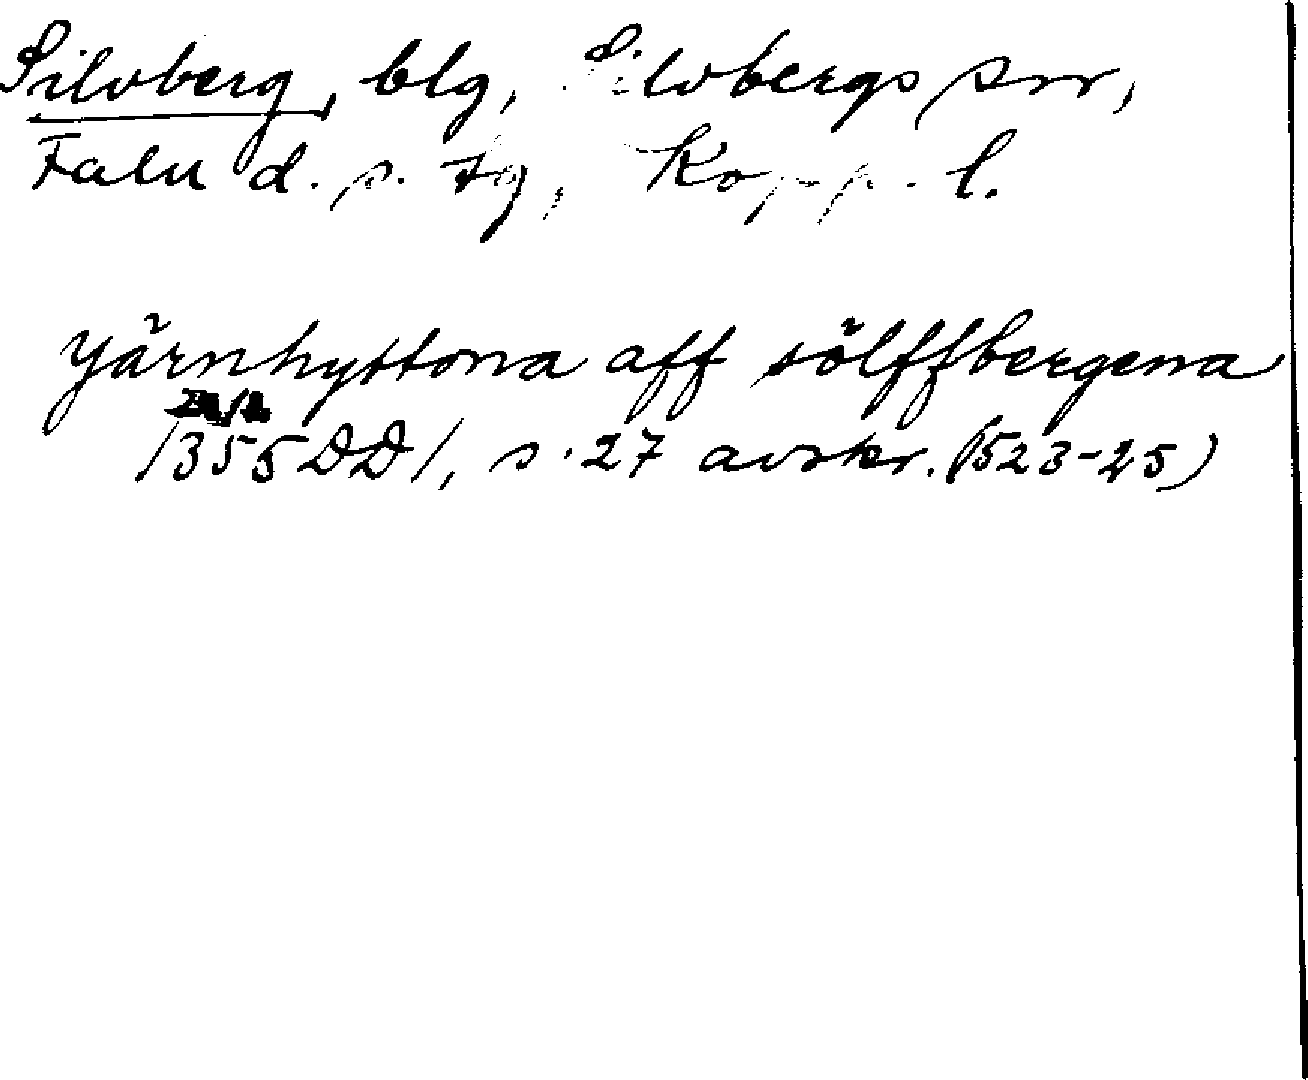 Silvberg, blg, Silvbergs sn,
Falu d. s. tg, Kopp. l.
yärnhyttona aff sölffbergena
1355 DD 1, s. 27 avskr. (1523-25)